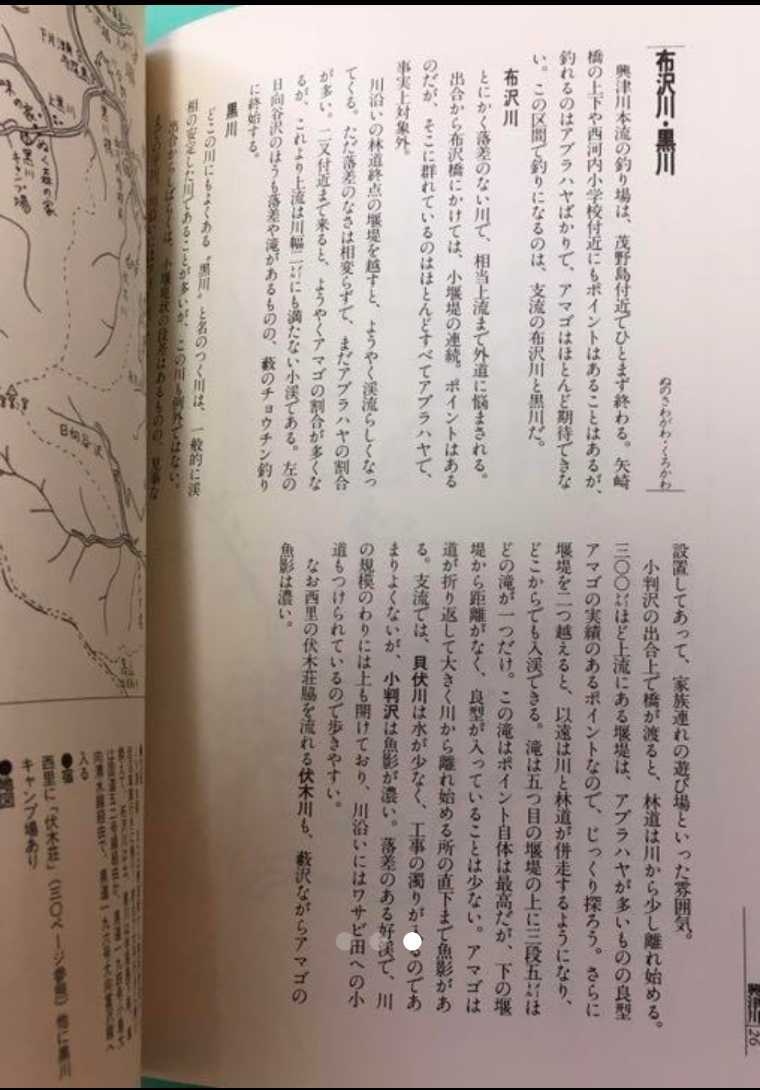 布沢川・黒川
ぬのさわがわ・くろかわ
興津川本流の釣り場は、茂野島付近でひとまず終わる。矢崎
橋の上下や西河内小学校付近にもポイントはあることはあるが、
釣れるのはアブラハヤばかりで、アマゴはほとんど期待できな
い。この区間で釣りになるのは、支流の布沢川と黒川だ。
布沢川
とにかく落差のない川で、相当上流まで外道に悩まされる。
出合から布沢橋にかけては、小堰堤の連続。ポイントはある
のだが、そこに群れているのはほとんどすべてアブラハヤで、
事実上対象外。
川沿いの林道終点の堰堤を越すと、ようやく渓流らしくなっ
てくる。ただ落差のなさは相変らずで、まだアブラハヤの割合
が多い。二又付近まで来ると、ようやくアマゴの割合が多くな
るが、これより上流は川幅二㍍にも満たない小渓である。左の
日向谷沢のほうも落差や滝があるものの、藪のチョウチン釣り
に終始する。
黒川
どこの川にもよくある〝黒川〟と名のつく川は、一般的に渓
相の安定した川であることが多いが、この川も例外ではない。
出合からしばらくは、小堰堤状の段差はあるものの、見事な
設置してあって、家族連れの遊び場といった雰囲気。
小判沢の出合上で橋が渡ると、林道は川から少し離れ始める。
三〇〇㍍ほど上流にある堰堤は、アブラハヤが多いものの良型
アマゴの実績のあるポイントなので、じっくり探ろう。さらに
堰堤を二つ越えると、以遠は川と林道が併走するようになり、
どこからでも入渓できる。滝は五つ目の堰堤の上に三段五㍍ほ
どの滝が一つだけ。この滝はポイント自体は最高だが、下の堰
堤から距離がなく、良型が入っていることは少ない。アマゴは
道が折り返して大きく川から離れ始める所の直下まで魚影があ
る。支流では、貝伏川は水が少なく、工事の濁りが入るのであ
まりよくないが、小判沢は魚影が濃い。落差のある好渓で、川
の規模のわりには上も開けており、川沿いにはワサビ田への小
道もつけられているので歩きやすい。
なお西里の伏木荘脇を流れる伏木川も、藪沢ながらアマゴの
魚影は濃い。
興津川 26
日向谷沢
黒川
キャンプ場
入る
●宿
西里に「伏木荘」（三〇ページ参照）他に黒川
キャンプ場あり
●地図